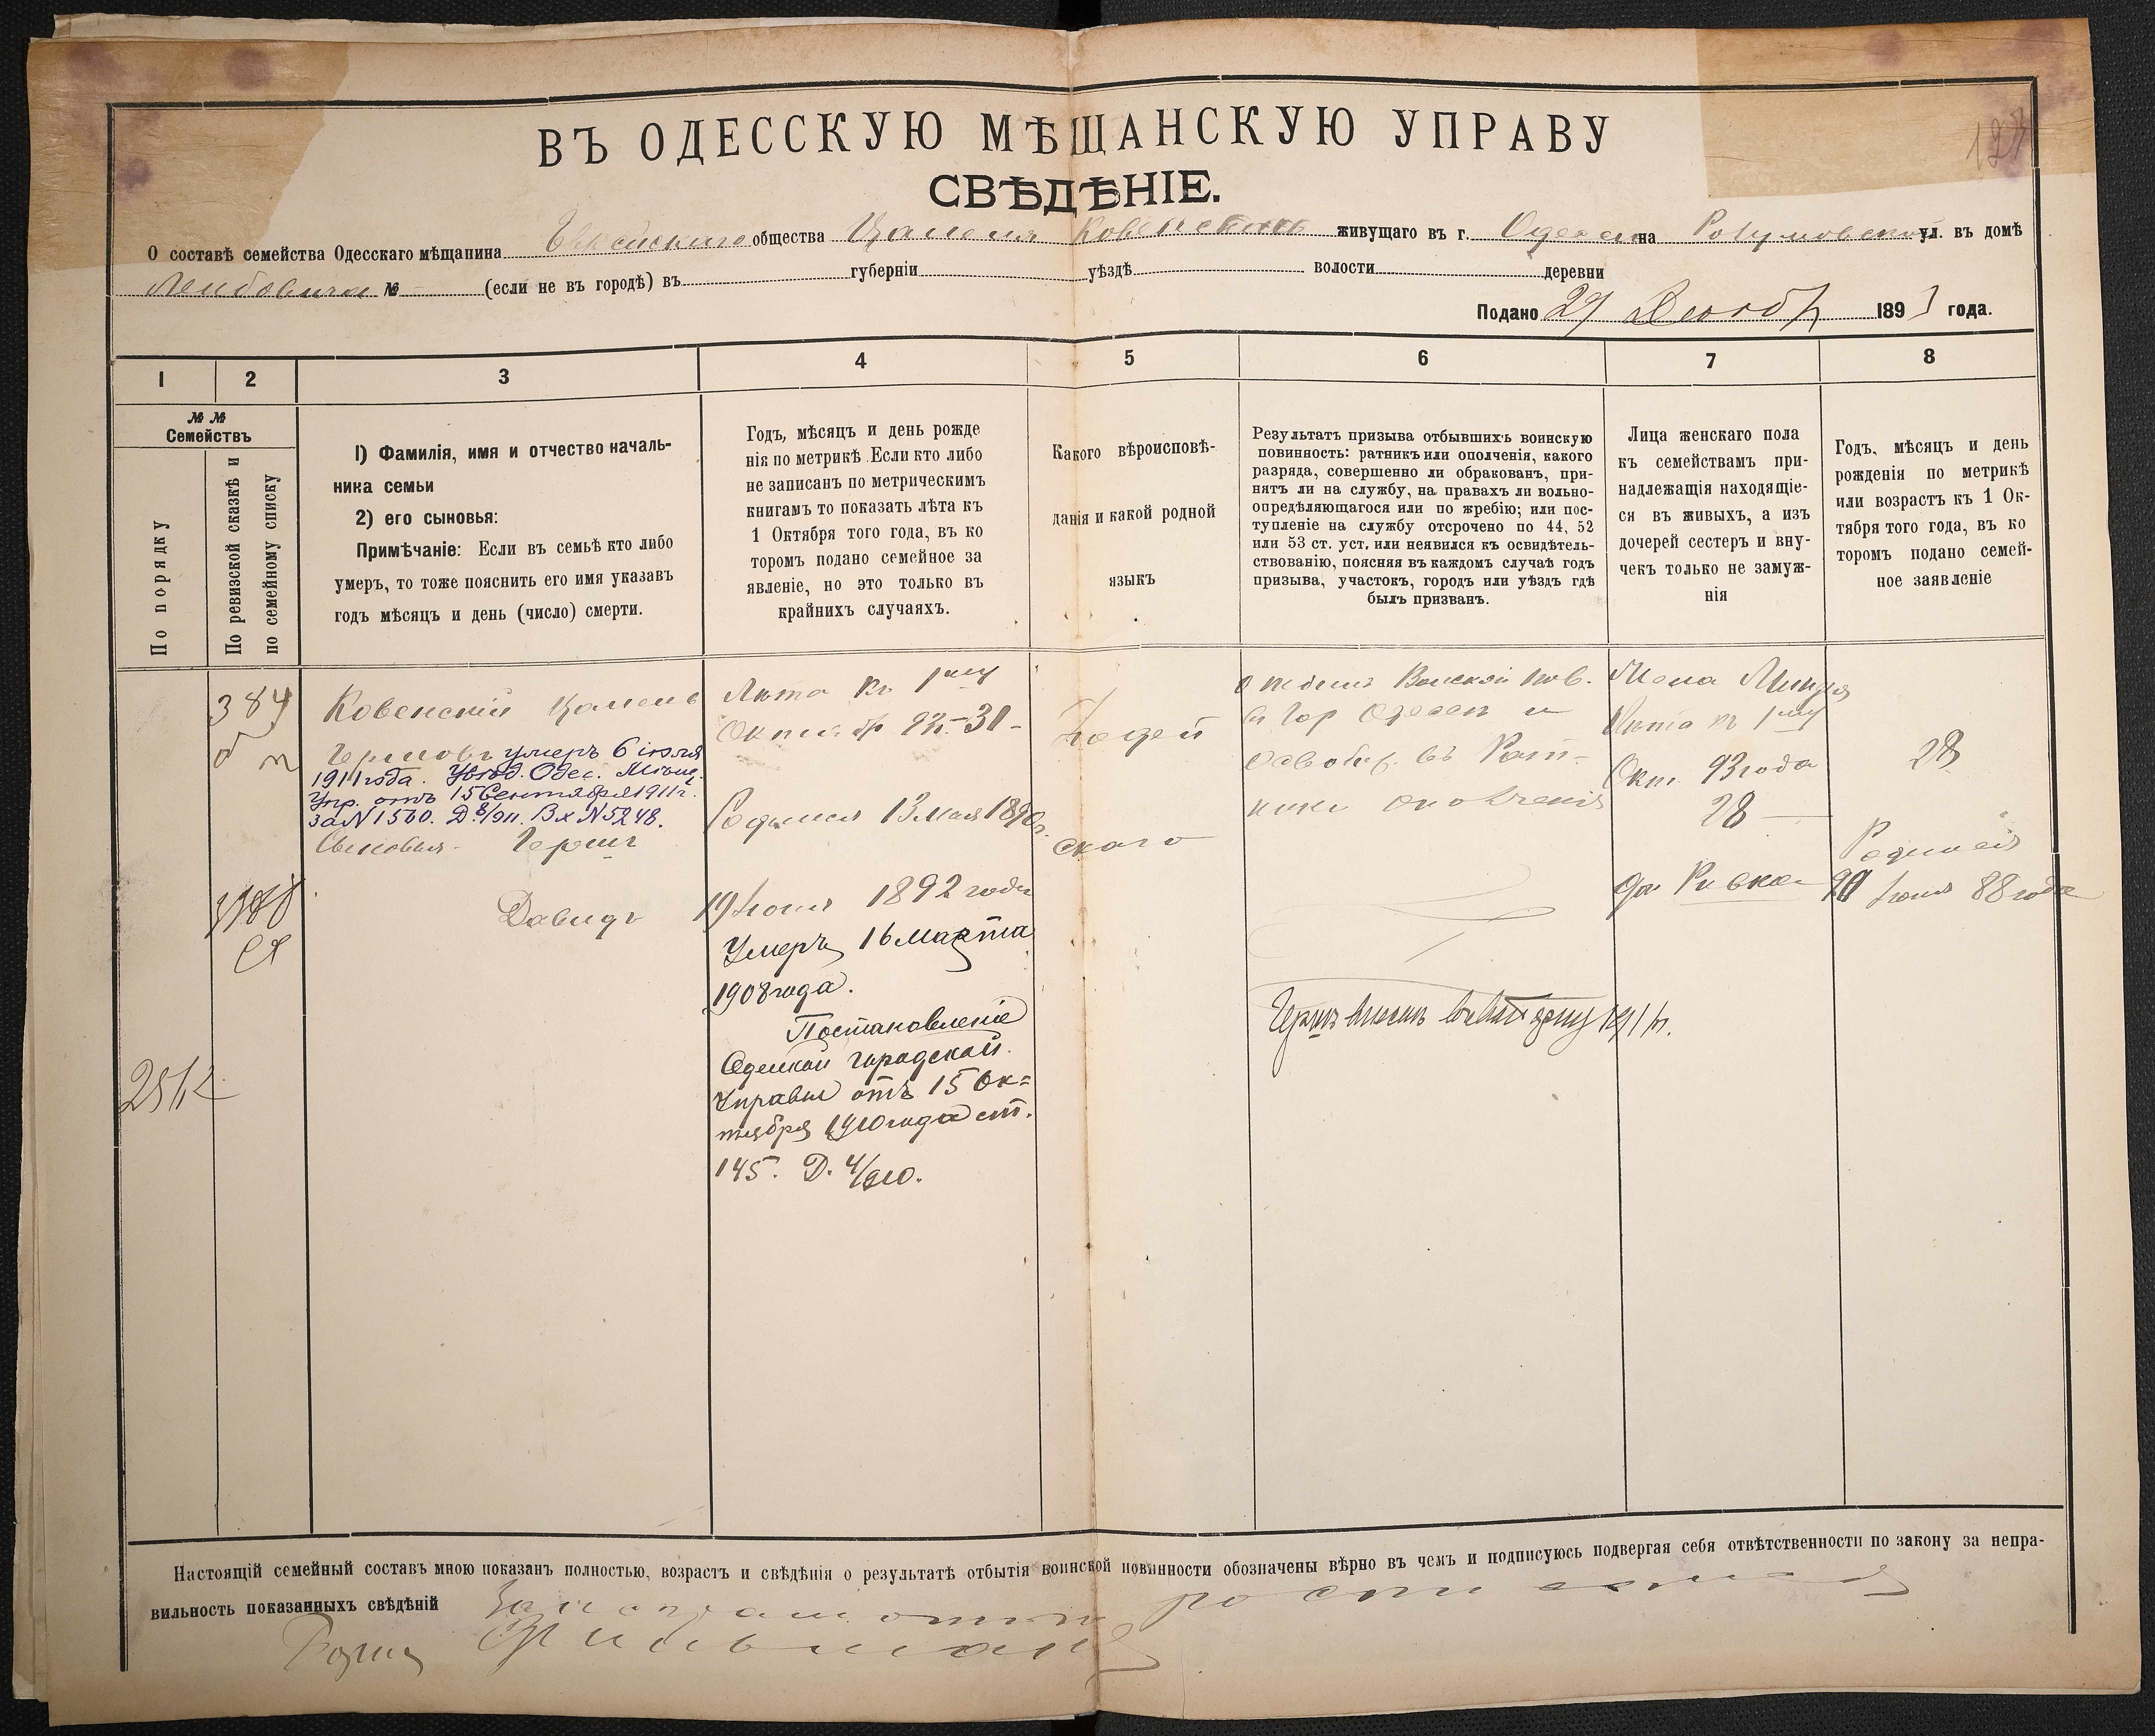 ВЪ ОДЕССКУЮ МѢЩАНСКУЮ УПРАВУ
СВѢДѢНІЕ.
О составѣ семейства Одесскаго мѣщанина Еврейскаго общества Цаменя Ковенскаго живущаго въ г. Одесса на ул. въ домѣ
№ (если не въ городѣ) въ губерніи уѣздѣ волости деревни
Подано 29 1893 года.
1 2 3 4 5 6 7 8
№№ Семействъ
По порядку
По ревизской сказкѣ и по семейному списку
1) Фамилія, имя и отчество началь-
ника семьи
2) его сыновья:
Примѣчаніе: Если въ семьѣ кто либо
умеръ, то тоже пояснить его имя указавъ
годъ мѣсяцъ и день (число) смерти.
Годъ, мѣсяцъ и день рожде
нія по метрикѣ. Если кто либо
не записанъ по метрическимъ
книгамъ то показать лѣта къ
1 Октября того года, въ ко
торомъ подано семейное за
явленіе, но это только въ
крайнихъ случаяхъ.
Какого вѣроисповѣ-
данія и какой родной
языкъ
Результатъ призыва отбывшихъ воинскую
повинность: ратникъ или ополченія, какого
разряда, совершенно ли обракованъ, при-
нятъ ли на службу, на правахъ ли вольно-
опредѣляющагося или по жребію; или пос-
тупленіе на службу отсрочено по 44, 52
или 53 ст. уст. или неявился къ освидѣтель-
ствованію, поясняя въ каждомъ случаѣ годъ
призыва, участокъ, городъ или уѣздъ гдѣ
былъ призванъ.
Лица женскаго пола
къ семействамъ при-
надлежащія находящіе-
ся въ живыхъ, а изъ
дочерей сестеръ и вну-
чекъ только не замуж-
нія
Годъ, мѣсяцъ и день
рожденія по метрикѣ
или возрастъ къ 1 Ок-
тября того года, въ ко
торомъ подано семей-
ное заявленіе
384
Ковенскій Цамень
умеръ 6 іюля
1911 года. Увѣд. Одес. Мѣщ.
Упр. отъ 15 Сентября 1911 г.
за N 1560. Д. 8/911. Вх N 5248.
Сыновья - Гершъ
Давидъ
2512
Лѣта къ 1му
Октября 93 г. - 31 -
Родился 13 мая 1890 г.
19 Іюня 1892 года
Умеръ 16 Марта
1908 года.
Постановленіе
Одесской Городской
Управы отъ 15 Ок=
тября 1910 года ст.
145. Д. 4/910.
Іюдей
скаго
отбылъ Воиской пов.
въ гор Одессѣ и
освобж. въ Рат-
ники ополченія
Гершъ внесенъ 1911 г.
Жена
Лѣта къ 1му
Окт. 93 года
28
28
дч. Ривка
Родилась
20 Іюня 88 года
Настоящій семейный составъ мною показанъ полностью, возрастъ и свѣдѣнія о результатѣ отбытія воинской повинности обозначены вѣрно въ чемъ и подписуюсь подвергая себя отвѣтственности по закону за непра-
вильность показанныхъ свѣдѣній